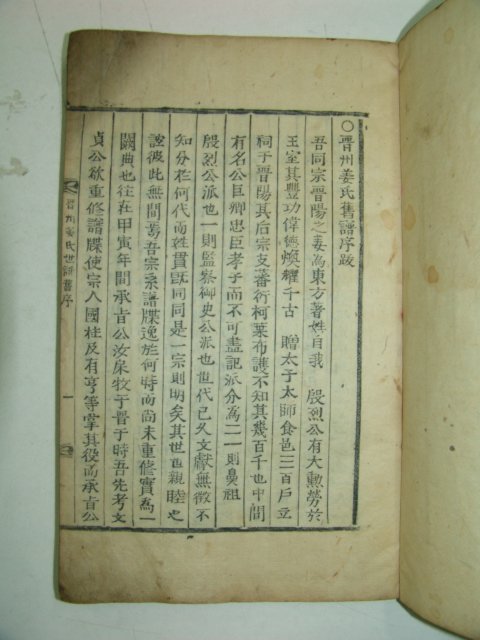 ○晉州姜氏舊譜序跋
吾同宗晉陽之姜為東方著姓自我 殷烈公有大勳勞於
王室其豐功偉德煥耀千古 贈太子太師食邑三百戶立
祠于晉陽其后宗支蕃衍柯葉布濩不知其幾百千也中間
有名公巨卿忠臣孝子而不可盡記派分為二一則曼祖
殷烈公派也一則監察御史公派也世代已久文獻無徵不
知分於何代而姓貫既同同是一宗則明矣其世也親睦之
誼彼此無間焉吾宗系譜牒逸於何時而尚未重修實為一
闕典也往在甲寅年間承旨公汝㞗牧于晉于時吾先考文
貞公欲重修譜牒使宗人國柱及有亨等掌其役而承旨公
晉州姜氏世譜舊序
一